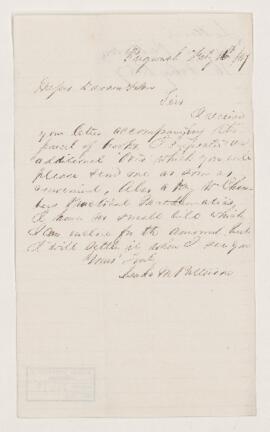 Pugwash Feby 18th /67
Messrs Dawson
Sirs
I received
your letter accompanying the
parcel of books
additional which you will
please send me as soon as
convenient, Also a Key to Cham-
bers Practical Mathematics,
I have no small bills which
I can enclose for the amount but
I will settle it when I see you
Yours Truly